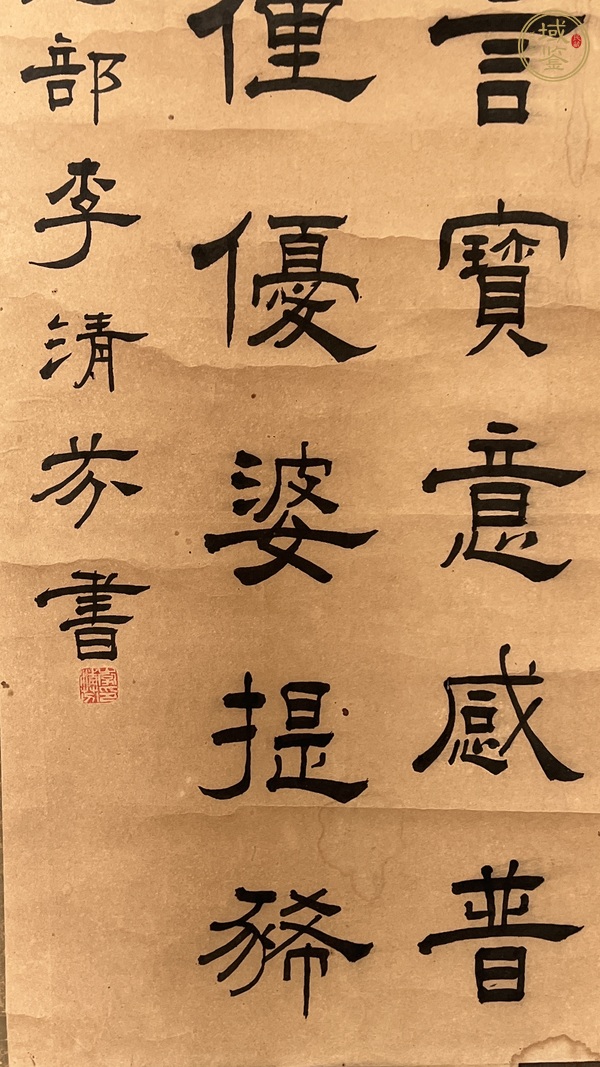 言寶意感普
優婆提豨
部李清芬書
域鉴